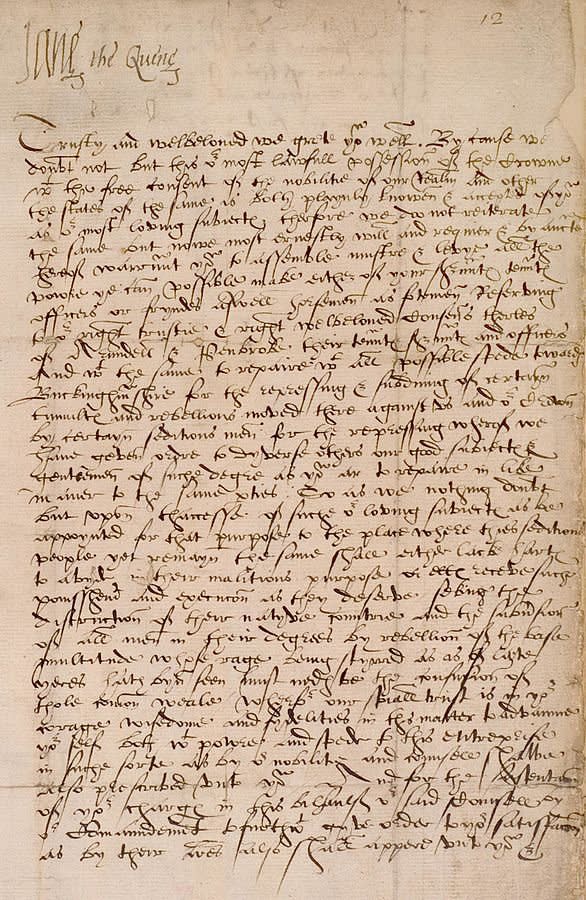 12
Jane the Quene
Trusty and welbeloved we grete yor well. By cause we
doubt not but this or most lawfull possession of the Crowne
wt the free consent of the nobilitie of our Realm and other
the states of the same is both playnly knowen & accepted of you
as or most loving subiects therfore we do not reiterate
the same but nowe most ernestly will and requier & by aucte
herof warraunt you to assemble mustre & levye all the
powre ye can possible make either of your servnts tennts
officers or fryndes aswell horsemen as footemen Reserving
to or right trustie & right welbeloved Cousens therles
of Arundell & Penbroke their tennts servnts and officers
And wt the same to repaire wt all possible spede towards
Buckinghamshire for the repressing & subduing of certain
tumults and rebellions moved there against us and or Crown
by certayn seditious men for the repressing wherof we
have geven ordre to dyverse others our good subiects &
gentlemen of suche degre as you ar to repaire in like
maner to the same ptes. So as we nothing doubt
but upon thaccesse of suche or loving subiects as be
appoynted for that purpose to the place where thies seditious
people yet remayn the same shall either lacke harts
to abyde in their malitious purpose or receve suche
punishment and execucon as they deserve seking the
distruction of their natyve countrie and the subversion
of all men in their degrees by rebellion of the base
multitude whose rage being styrred as of late
yeres hath byn seen must nedes be the confusion of
thole comon weale wherfor our speciall trust is in yor
corage wisedome and fydelities in this matter to advaunce
yor self both wt powre and spede to this entreprese
in suche sorte as by or nobilitie and counsell shalbe
also prescribed unto you And for the
of yor charge in this bihaulf or said Counsell by
or Comaundement to gyve order to yor satisfaction
as by their lres also shall appere unto you